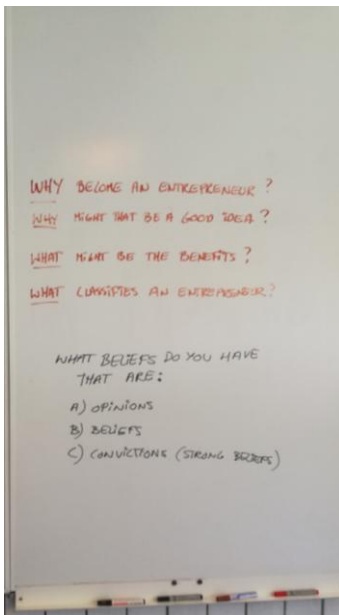 WHY BECOME AN ENTREPRENEUR?
WHY MIGHT THAT BE A GOOD IDEA?
WHAT MIGHT BE THE BENEFITS?
WHAT CLASSIFIES AN ENTREPRENEUR?
WHAT BELIEFS DO YOU HAVE
THAT ARE:
A) OPINIONS
B) BELIEFS
C) CONVICTIONS (STRONG BELIEFS)